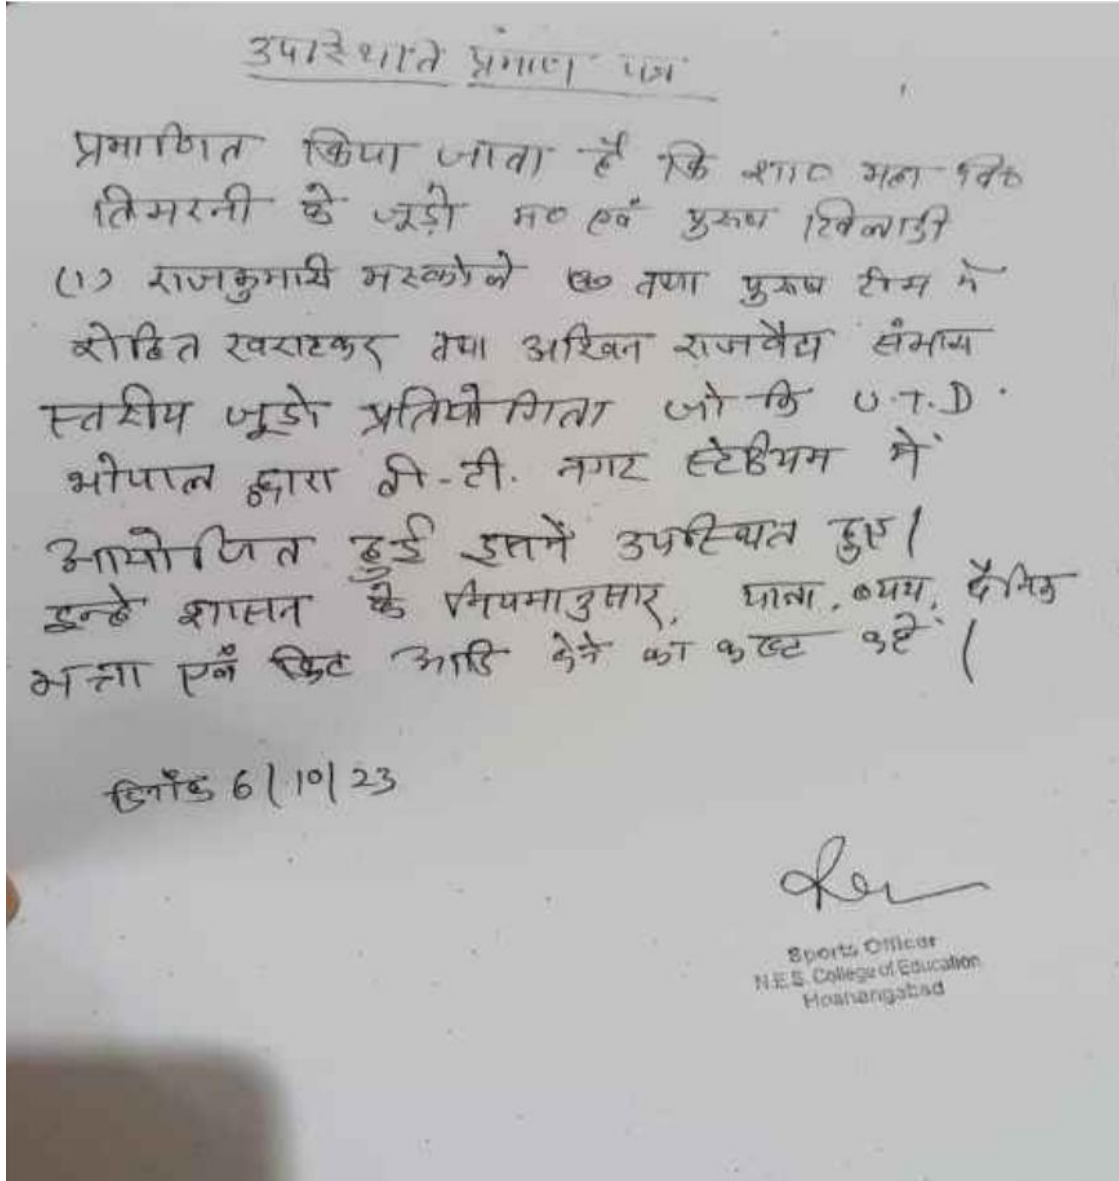 उपस्थिति प्रमाण पत्र
प्रमाणित किया जाता है कि शा० महा वि०
टिमरनी के जूडो म० एवं पुरुष खिलाडी
(1) राजकुमारी मस्कोले तथा पुरुष टीम मे
रोहित खराटकर तथा अखिल राजवैद्य संभाग
स्तरीय जूडो प्रतियोगिता जो कि U.T.D.
भोपाल द्वारा टी-टी. नगर स्टेडियम में
आयोजित हुई इसमें उपस्थित हुए।
इन्हे शासन के नियमानुसार, यात्रा, व्यय, दैनिक
भत्ता एवं किट आदि देने का कष्ट करें।
दिनाँक 6/10/23
Sports Officer
N.E.S. College of Education
Hoshangabad